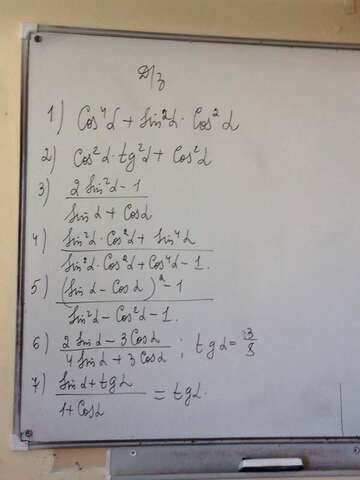 Д/з
1) Cos⁴α + Sin²α · Cos²α
2) Cos²α · tg²α + Cos²α
3) (2 Sin²α - 1) / (Sin α + Cos α)
4) (Sin²α · Cos²α + Sin⁴α) / (Sin²α · Cos²α + Cos⁴α - 1.)
5) ((Sin α - Cos α)² - 1) / (Sin²α - Cos²α - 1.)
6) (2 Sin α - 3 Cos α) / (4 Sin α + 3 Cos α) ; tg α = 3/
7) (Sin α + tg α) / (1 + Cos α) = tg α.